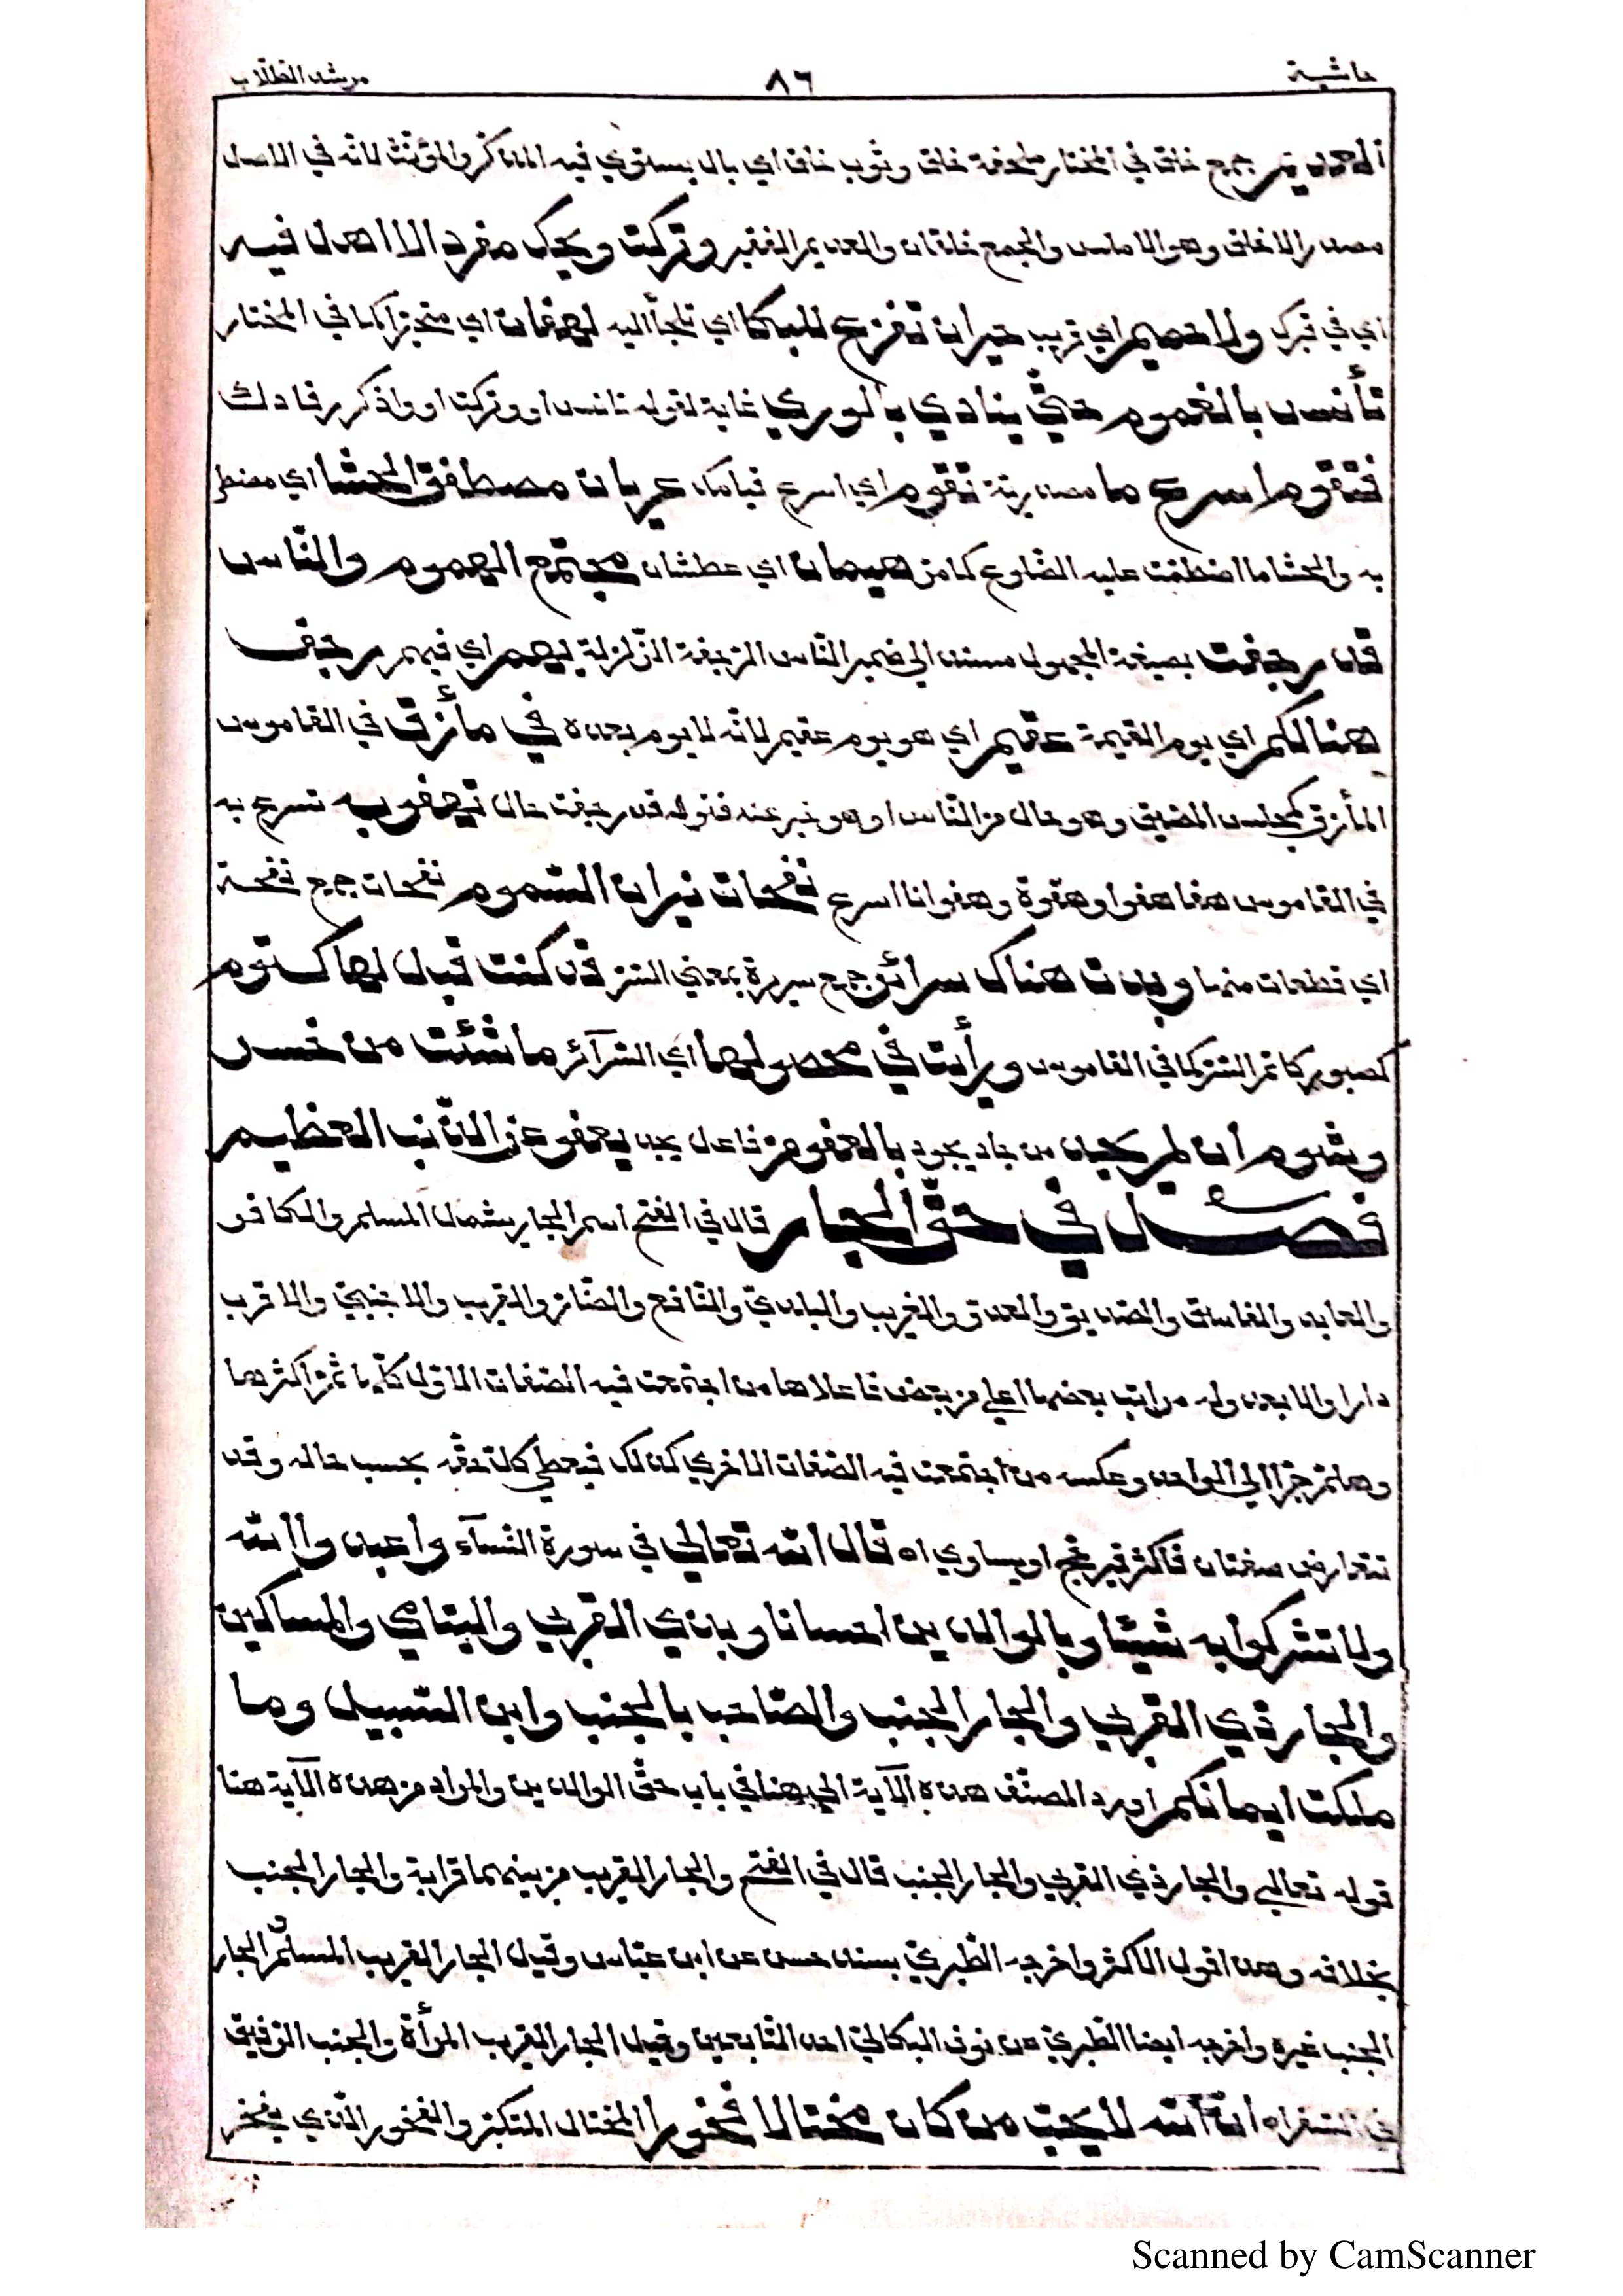 حاشية ٨٦ مرشد الطلاب
العديم جمع خلق في المختار ملحفة خلق وثوب خلق اي بال يستوي فيه المذكر والمؤنث لانه في الاصل
مصدر الاخلق وهو الاملس والجمع خلقان والعديم الفقير وتركت ويحك مفردا لا اهل فيه
اي في قبرك ولا حميم اي قريب حيران تفزع للبكا اي تلجأ اليه لهفان اي متحيرا كما في المختار
تأنس بالغموم حتى ينادي بالوري غاية لقوله تانس او وتركت او واذكر رقادك
فتقوم اسرع ما مصدرية تقوم اي اسرع قيامك عريان مصطفق الحشا اي مضطر
به والحشا ما اضطمت عليه الضلوع كما مر هيمان اي عطشان مجتمع الهموم والناس
قد رجفت بصيغة المجهول مسند الي ضمير الناس الرجفة الزلزلة بهم اي فيهم رجيف
هنالكم اي يوم القيمة عقيم اي هو يوم عقيم لانه لا يوم بعده في مأزق في القاموس
المأزق كمجلس المضيق وهو حال من الناس او هو خبر عنه فقوله قد رجفت حال تهفو به تسرع به
في القاموس هفا هفوا وهفوة وهفوانا اسرع نفحات نيران السموم نفحات جمع نفحة
اي قطعات منها وبدت هناك سرائر جمع سريرة بمعني السر قد كنت قبل لها كتوم
كصبور كاتم السر كما في القاموس ورأيت في محصولها اي السرآئر ما شئت من خسر
وشوم ان لم يجد من جاد يجود بالعفو من فاعل يجد يعفو عن الذنب العظيم
فصل في حق الجار قال في الفتح اسم الجار يشمل المسلم والكافر
والعابد والفاسق والصديق والعدو والغريب والبلدي والنافع والضار والقريب والاجنبي والاقرب
دارا والابعد وله مراتب بعضها اعلي من بعض فاعلاها من اجتمعت فيه الصفات الاول كلها ثم اكثرها
وهلم جرا الي الواحد وعكسه من اجتمعت فيه الصفات الاخري كذلك فيعطي كل حقه بحسب حاله وقد
تتعارض صفتان فاكثر فيرجح او يساوي اه قال الله تعالي في سورة النسآء واعبدوا الله
ولا تشركوا به شيئا وبالوالدين احسانا وبذي القربي واليتامي والمساكين
والجار ذي القربي والجار الجنب والصاحب بالجنب وابن السبيل وما
ملكت ايمانكم اورد المصنف هذه الآية الي هنا في باب حق الوالدين والمراد من هذه الآية هنا
قوله تعالي والجار ذي القربي والجار الجنب قال في الفتح والجار القريب من بينهما قرابة والجار الجنب
بخلافه وهذا قول الاكثر واخرجه الطبري بسند حسن عن ابن عباس وقيل الجار القريب المسلم والجار
الجنب غيره واخرجه ايضا الطبري عن نوف البكالي احد التابعين وقيل الجار القريب المرأة والجنب الرفيق
في السفر اه ان الله لا يحب من كان مختالا فخورا المختال المتكبر والفخور الذي يفخر
Scanned by CamScanner